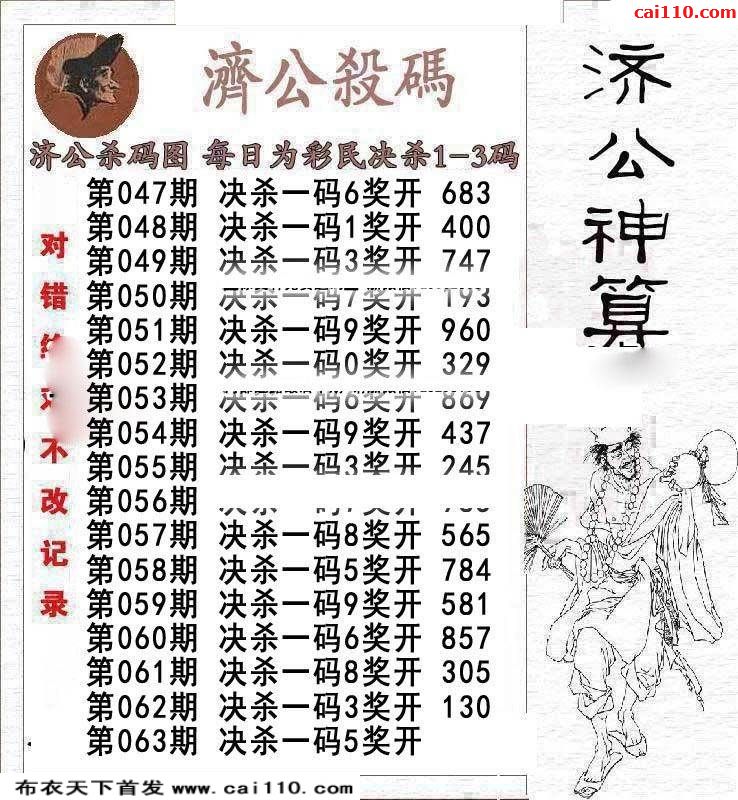 cai110.com
濟公殺碼
济公杀码图 每日为彩民决杀1-3码
第047期 决杀一码6奖开 683
第048期 决杀一码1奖开 400
第049期 决杀一码3奖开 747
第050期 决杀一码7奖开 193
第051期 决杀一码9奖开 960
第052期 决杀一码0奖开 329
第053期 决杀一码6奖开 869
第054期 决杀一码9奖开 437
第055期 决杀一码3奖开 245
第056期
第057期 决杀一码8奖开 565
第058期 决杀一码5奖开 784
第059期 决杀一码9奖开 581
第060期 决杀一码6奖开 857
第061期 决杀一码8奖开 305
第062期 决杀一码3奖开 130
第063期 决杀一码5奖开
对错
不改记录
济公神算
布衣天下首发 www.cai110.com